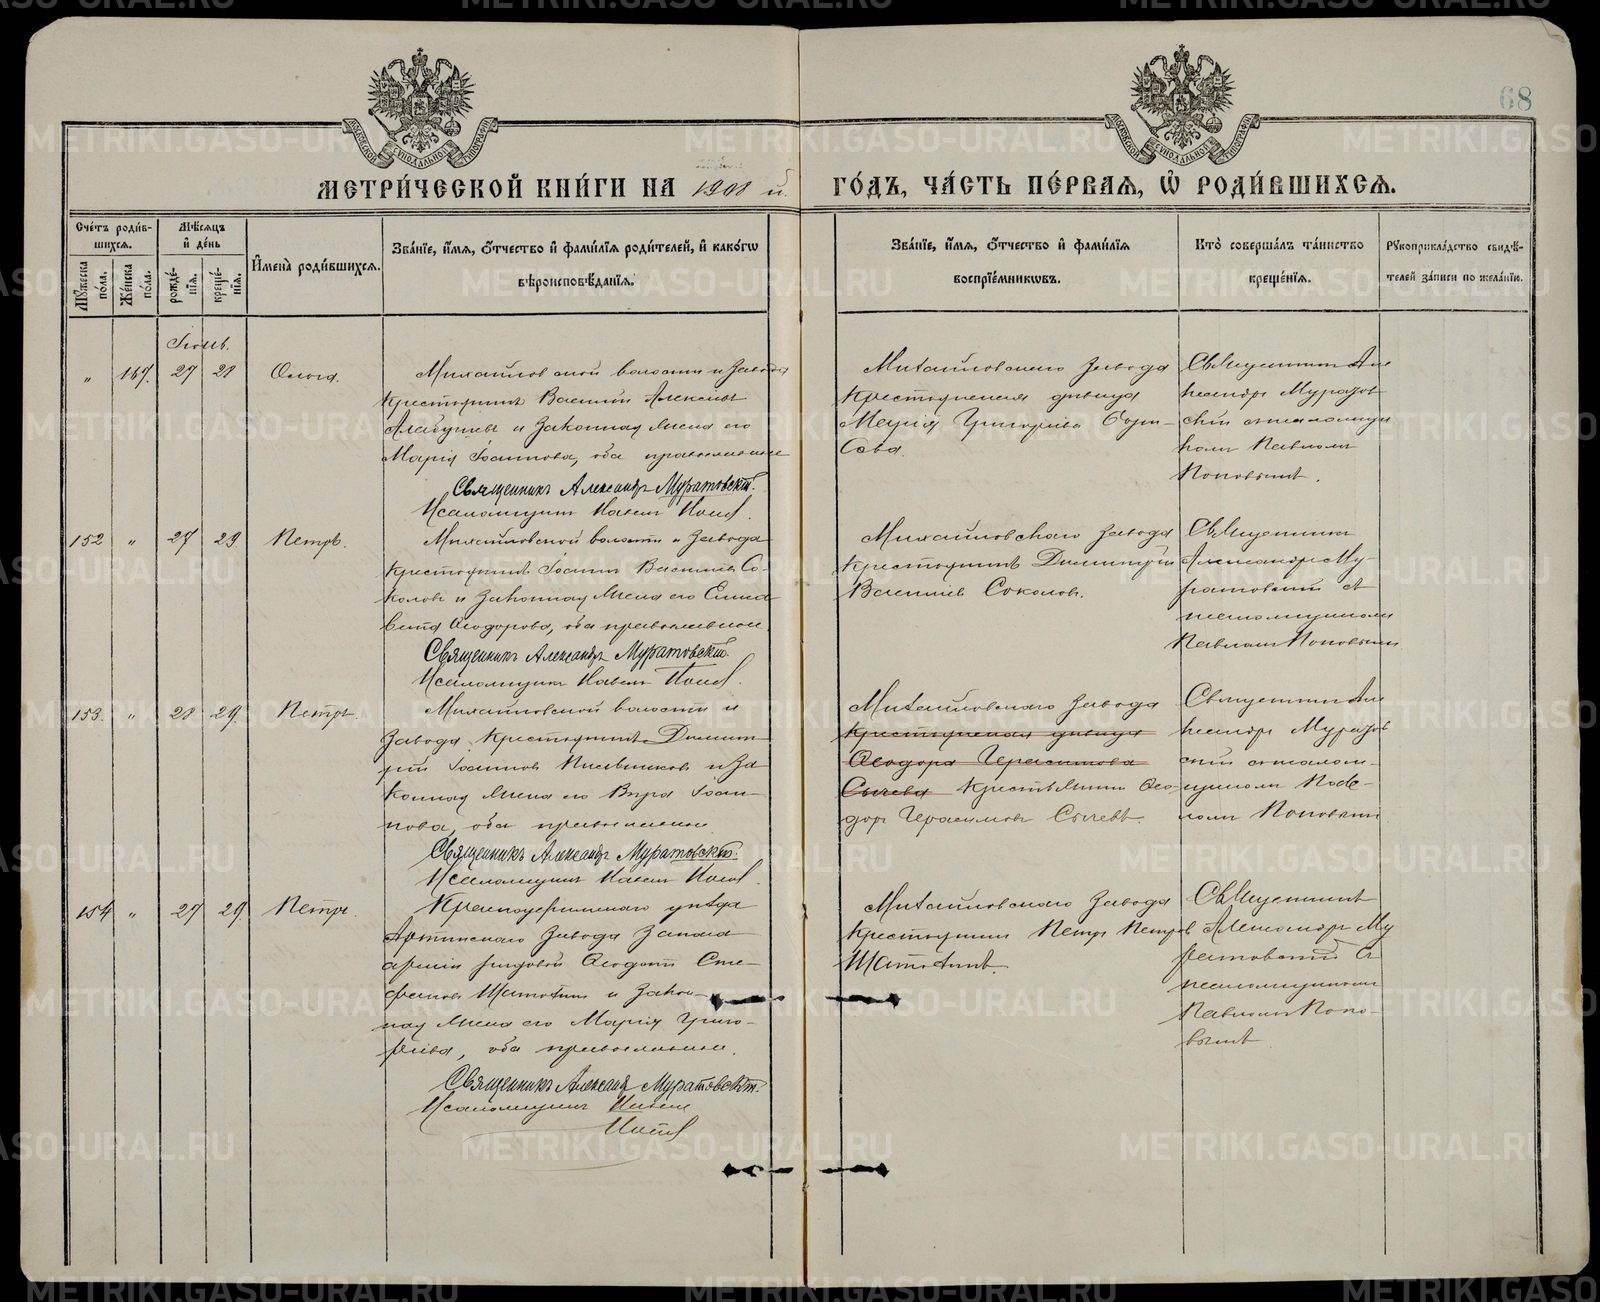 68
МОСКОВСКОЙ СѴНОДАЛЬНОЙ ТИПОГРАФІИ
МОСКОВСКОЙ СѴНОДАЛЬНОЙ ТИПОГРАФІИ
МЕТРИ́ЧЕСКОЙ КНИ́ГИ НА 1908 й. ГО́ДЪ, ЧА́СТЬ ПЕ́РВАЯ, Ѡ҆ РОДИ́ВШИХСЯ.
Сче́тъ роди́в-
шихся.
Мѣ́сяцъ
и҆ де́нь
Мꙋ́жеска
пола.
Же́нска
по́ла.
рожде́-
нїѧ.
креще́-
нїѧ.
И҆мена̀ роди́вшихсѧ.
Зва́нїе, и҆́мѧ, ѻ҆́тчество и҆ фами́лїѧ роди́телей, и҆ како́гѡ
вѣроисповѣ́данїѧ.
Зва́нїе, и҆́мѧ, ѻ҆́тчество и҆ фами́лїѧ
воспрїе́мникѡвъ.
Кто̀ соверша́лъ та́инство
креще́нїѧ.
Рꙋкоприкла́дство свидѣ́-
телей за́писи по жела́нїю.
Іюнь.
„ 147. 27 28 Ольга.
Михайловской волости и завода
крестьянинъ Василій Алексѣевъ
и законная жена его
Марія Іоаннова, оба православные
Священникъ Александръ Муратовскій.
Псаломщикъ Павелъ Поповъ.
Михайловскаго завода
крестьянская дѣвица
Марія Григорьева
Священникъ Але
ксандръ Муратов
скій съ псаломщи
комъ Павломъ
Поповымъ.
152 „ 27 29 Петръ.
Михайловской волости и завода
крестьянинъ Іоаннъ Васильевъ Со-
коловъ и законная жена его Елиса
вета Ѳеодорова, оба православные.
Священникъ Александръ Муратовскій.
Псаломщикъ Павелъ Поповъ.
Михайловскаго завода
крестьянинъ Димитрій
Васильевъ Соколовъ.
Священникъ
Александръ Му-
ратовскій съ
псаломщикомъ
Павломъ Поповымъ
153. „ 28 29. Петръ.
Михайловской волости и
завода крестьянинъ Димит-
рій Іоанновъ и за
конная жена его Вѣра Іоан-
нова, оба православные
Священникъ Александръ Муратовскій.
Псаломщикъ Павелъ Поповъ.
Михайловскаго завода
крестьянская дѣвица
Ѳеодора Герасимова
Сычева крестьянинъ Ѳео-
доръ Герасимовъ Сычевъ.
Священникъ Але
ксандръ Муратов
скій съ псалом-
щикомъ Павло-
мъ Поповымъ
154 „ 27 29 Петръ.
Красноуфимскаго уѣзда
Артинскаго завода запаса
арміи рядовой Ѳеодотъ Сте-
фановъ и закон-
ная жена его Марія Григо-
рьева, оба православные.
Священникъ Александръ Муратовскій.
Псаломщикъ Павелъ
Поповъ
Михайловскаго завода
крестьянинъ Петръ Петровъ
Священникъ
Александръ Му
ратовскій съ
псаломщикомъ
Павломъ Попо-
вымъ
METRIKI.GASO-URAL.RU